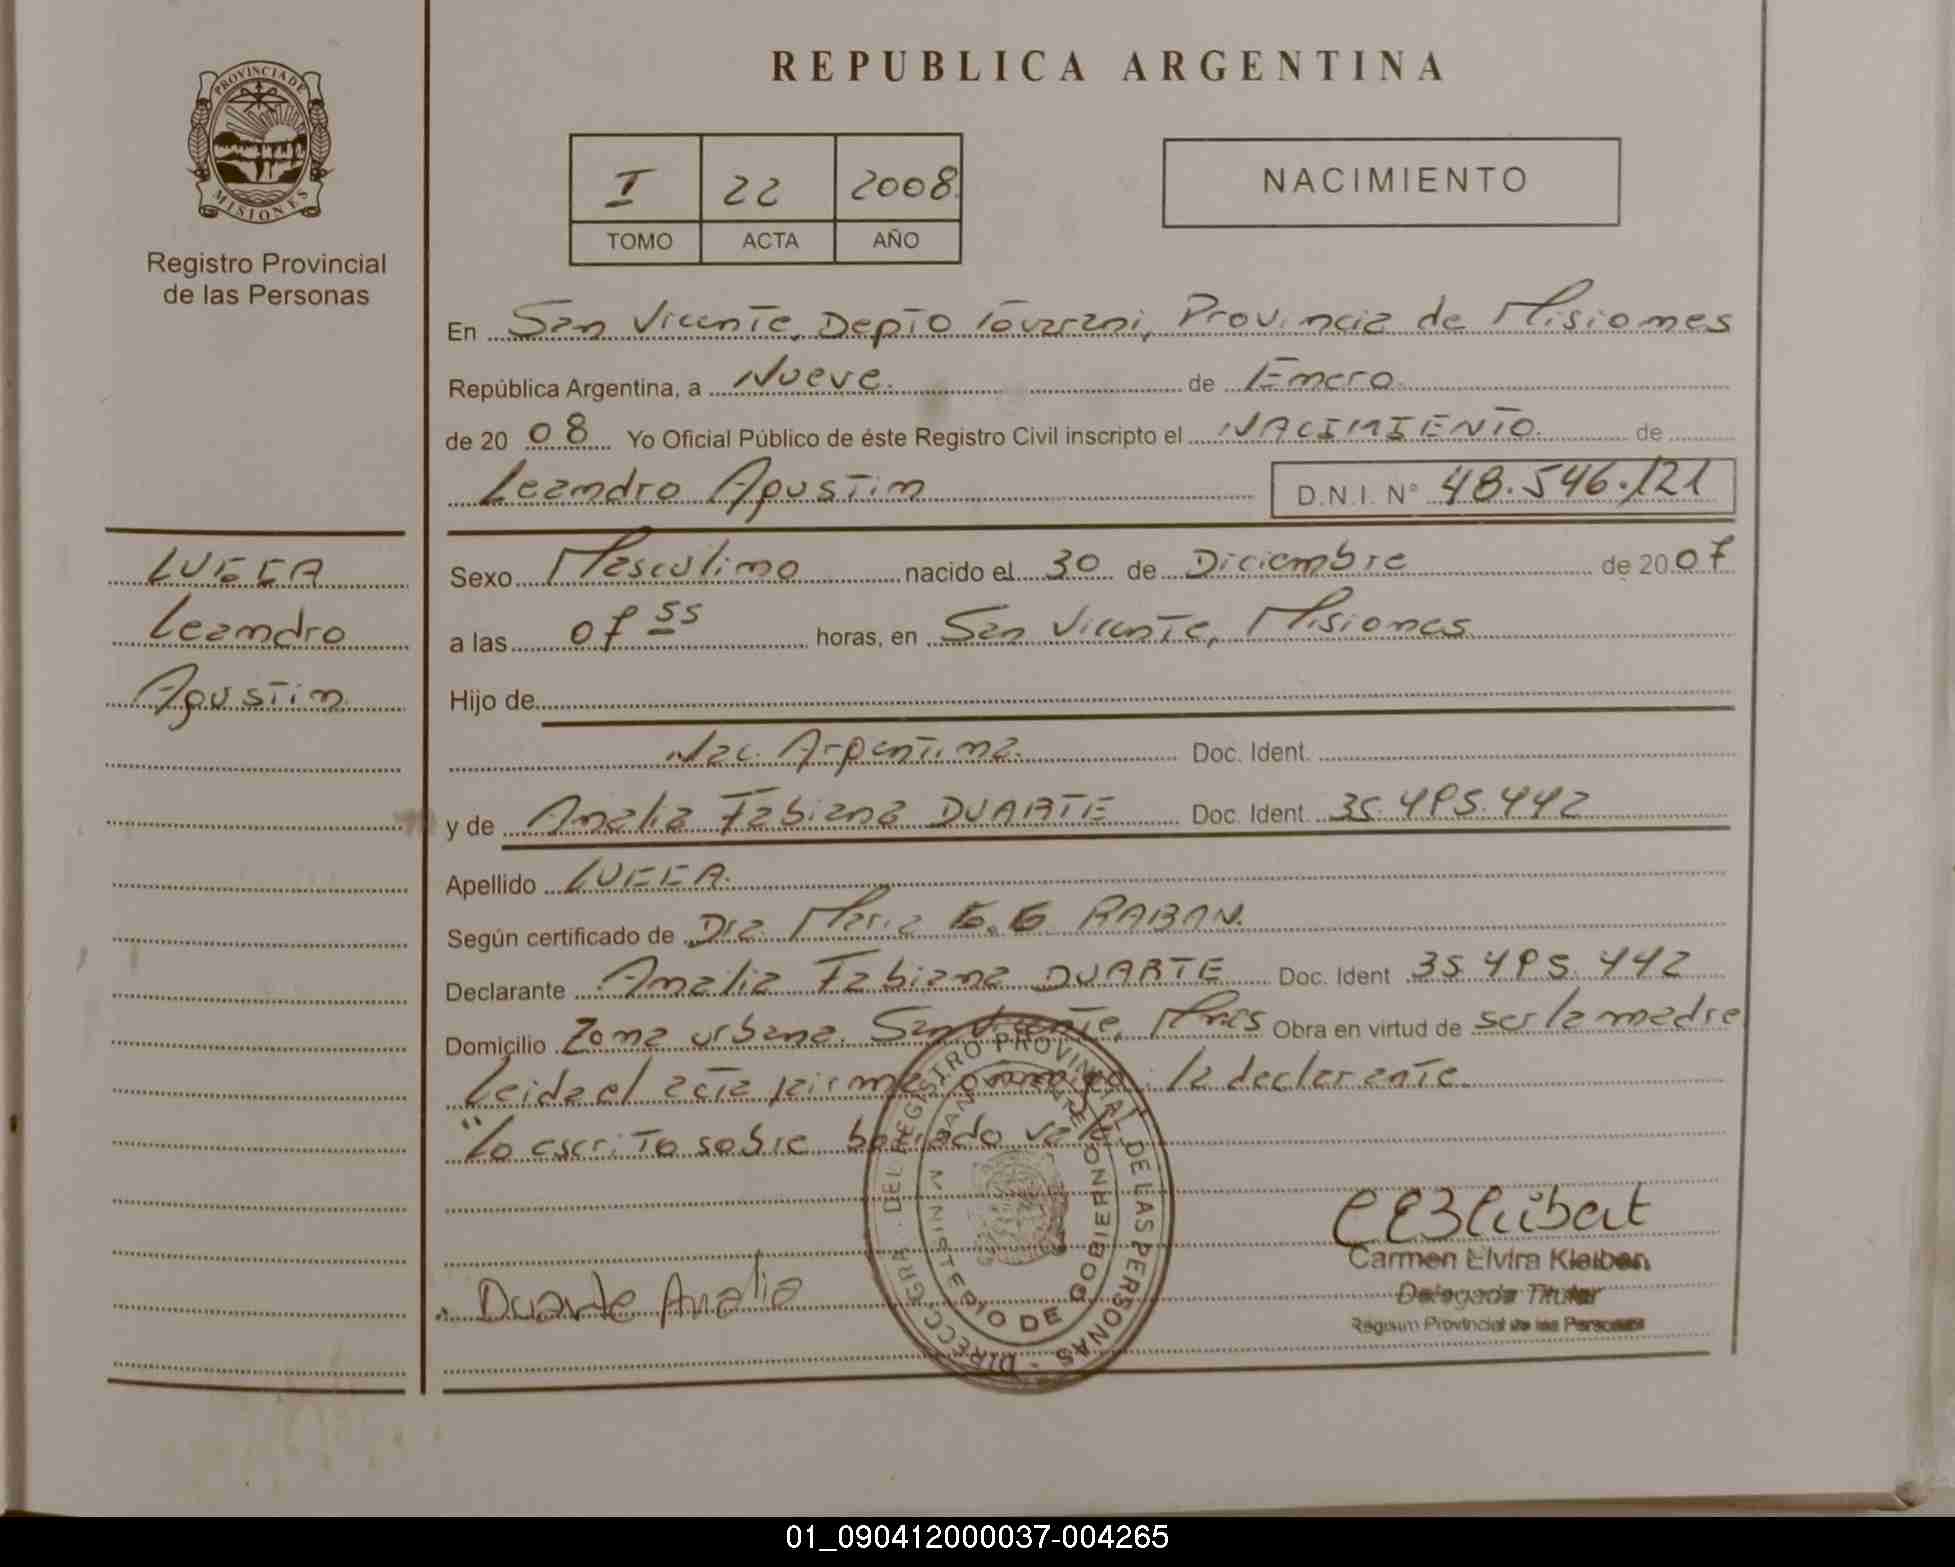 REPUBLICA ARGENTINA
PROVINCIA DE MISIONES
Registro Provincial
de las Personas
I 22 2008
TOMO ACTA AÑO
NACIMIENTO
En San Vicente, Depto Guarani, Provincia de Misiones
República Argentina, a Nueve de Enero
de 20 08 Yo Oficial Público de éste Registro Civil inscripto el NACIMIENTO de
Leandro Agustin D.N.I. N° 48.546.121
Leandro
Agustin
Sexo Masculino nacido el 30 de Diciembre de 20 07
a las 07 55 horas, en San Vicente, Misiones
Hijo de
Nac. Argentina Doc. Ident.
y de Analia Fabiana DUARTE Doc. Ident. 35.495.442
Apellido
Según certificado de Dra Maria E. G. RABAN.
Declarante Analia Fabiana DUARTE Doc. Ident 35 495 442
Domicilio Zona urbana. San Vicente, Mnes Obra en virtud de ser la madre
Leida el acta firma conmigo la declarante.
"Lo escrito sobre borrado vale
DIRECC. GRAL. DEL REGISTRO PROVINCIAL DE LAS PERSONAS
MINISTERIO DE GOBIERNO
Duarte Analia
Carmen Elvira
Delegada Titular
Registro Provincial de las Personas
01_090412000037-004265